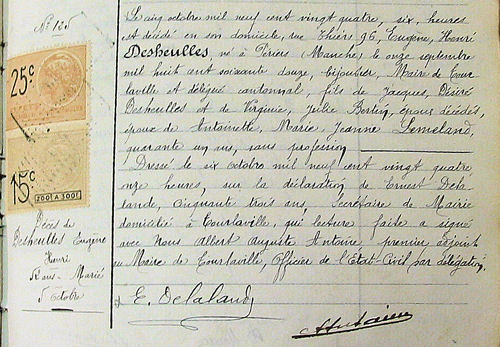 N° 125
25c
15c
200 A 300f
Décès de
Desheulles Eugène
Henri
Rans-Marié
5 octobre
Le cinq octobre mil neuf cent vingt quatre, six heures
est décédé en son domicile, rue Thiers 96, Eugène, Henri
Desheulles, né à Périers (Manche) le onze septembre
mil huit cent soixante douze, bijoutier, Maire de Tour
laville et délégué cantonnal, fils de Jacques, Désiré
Desheulles et de Virginie, Julie Bertin, époux décédés,
époux de Antoinette, Marie Jeanne Lemeland,
quarante un ans, sans profession
Dressé le six octobre mil neuf cent vingt quatre
onze heures, sur la déclaration de Ernest Dela
lande, cinquante trois ans, Secrétaire de Mairie
domicilié à Tourlaville, qui lecture faite a signé
avec Nous Albert Auguste Antoine, premier adjoint
au Maire de Tourlaville, Officier de l'Etat-Civil par délégation.
E. Delalande